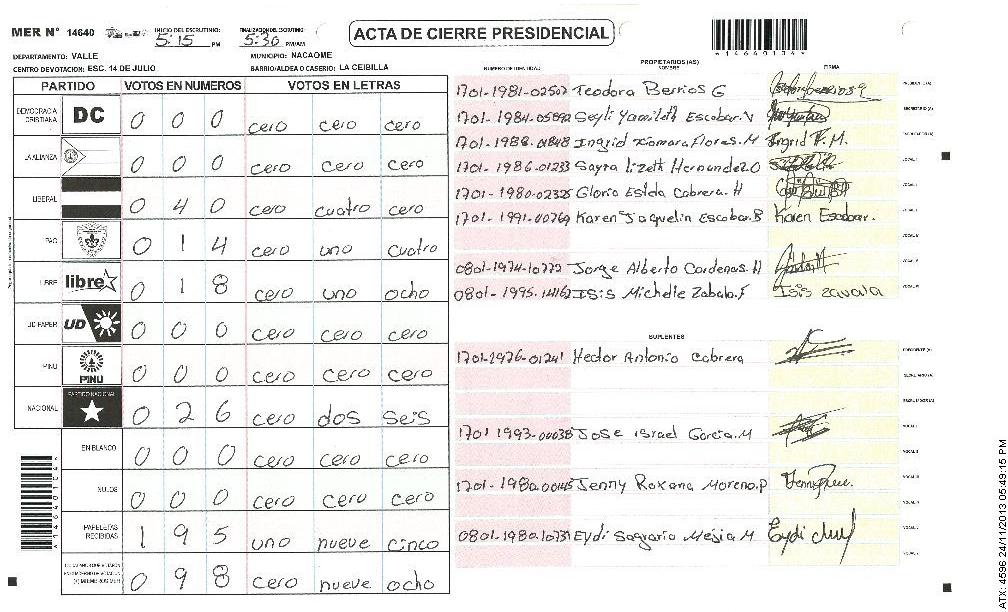 MER N° 14640
INICIO DEL ESCRUTINIO: 5:15 PM
FINALIZACION DEL ESCRUTINIO: 5:30 PM/AM
ACTA DE CIERRE PRESIDENCIAL
DEPARTAMENTO: VALLE
MUNICIPIO: NACAOME
CENTRO DEVOTACION: ESC. 14 DE JULIO
BARRIO/ALDEA O CASERIO: LA CEIBILLA
PARTIDO VOTOS EN NUMEROS VOTOS EN LETRAS
DEMOCRACIA CRISTIANA DC 0 0 0 cero cero cero
LA ALIANZA 0 0 0 cero cero cero
LIBERAL 0 4 0 cero cuatro cero
PAC 0 1 4 cero uno cuatro
LIBRE libre 0 1 8 cero uno ocho
UD FAPER UD 0 0 0 cero cero cero
PINU PINU 0 0 0 cero cero cero
NACIONAL PARTIDO NACIONAL 0 2 6 cero dos seis
EN BLANCO 0 0 0 cero cero cero
NULOS 0 0 0 cero cero cero
PAPELETAS RECIBIDAS 1 9 5 uno nueve cinco
0 9 8 cero nueve ocho
PROPIETARIOS (AS)
NUMERO DE IDENTIDAD NOMBRE FIRMA
1701-1981-02507 Teodora Berrios G
1701-1984- Seyli Yamileth Escobar.V
1701-1988-01848 Ingrid Xiomara Flores.M Ingrid F.M.
1701-1986-01233 Sayra Lizeth Hernandez.O
1701-1980-02325 Gloria Estela Cabrera.H
1701-1991-00769 Karen Jaquelin Escobar.B Karen Escobar.
0801-1974-10772 Jorge Alberto Cardenas.H
0801-1995-14162 Isis Michelle Zabala.F Isis Zavala
SUPLENTES
1701-1976-01241 Hector Antonio Cabrera
1701 1993-00038 Jose Israel Garcia.M
1701-1980-00145 Jenny Roxana Moreno.P
0801-1980-10731 Eydi Sagrario Mejia M
ATX: 4596 24/11/2013 05:49:15 PM